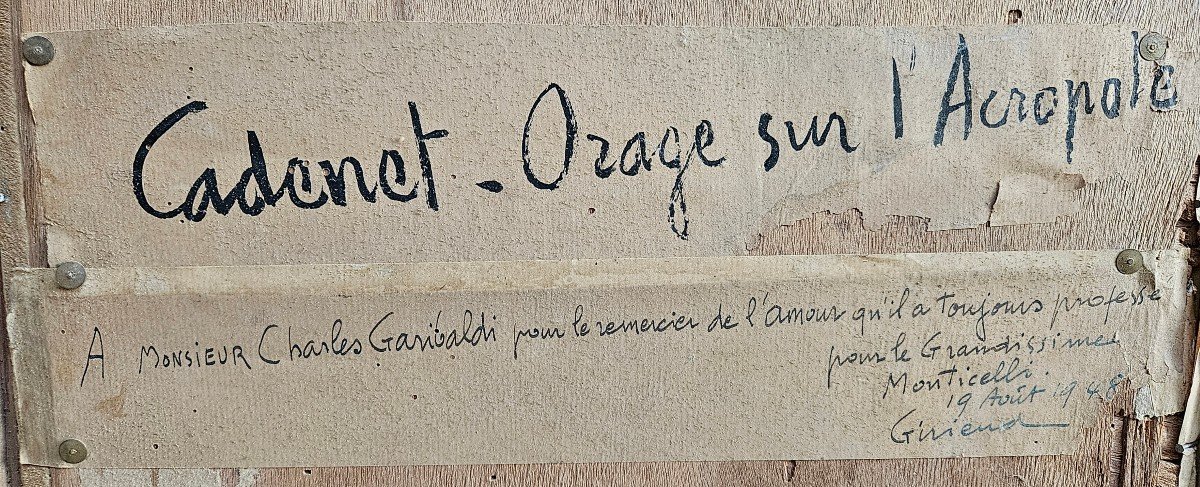 Cadenet - Orage sur l'Acropole
A MONSIEUR Charles Garibaldi pour le remercier de l'amour qu'il a toujours professé
pour le Grandissime
Monticelli.
19 Août 1948
Girieud